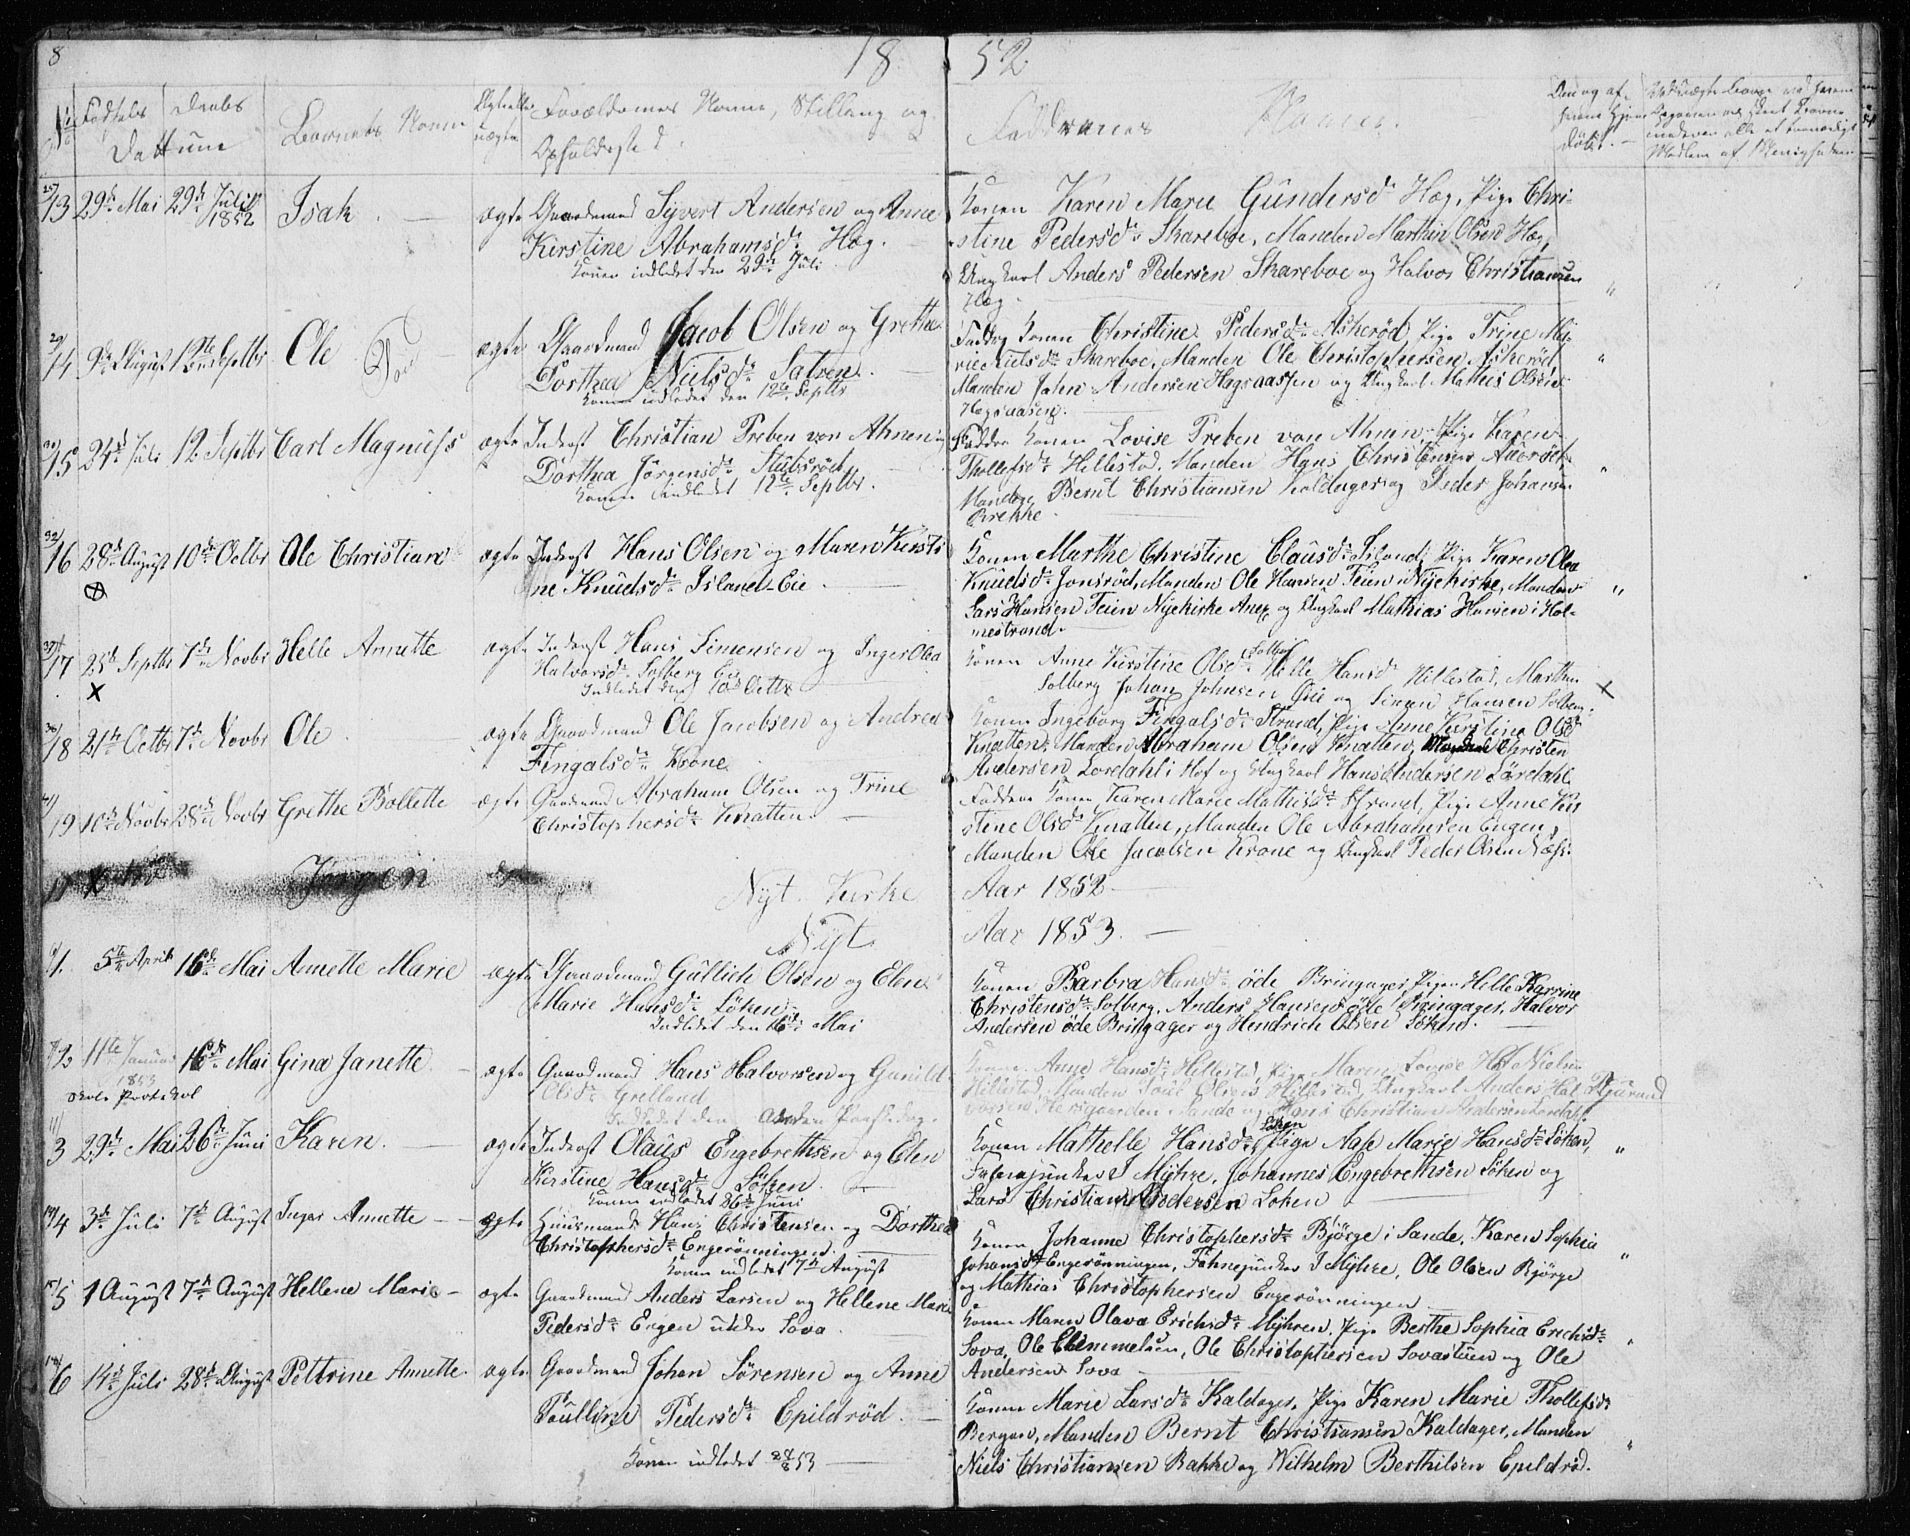 8
18 52
Fødsels Daabs
Datum
Barnets Navn
uægte
Forældrenes Navne, Stilling og
Opholdssted.
Faddernes Navne.
Døbt.
13 29de Mai 29de Juli 1852 Isak. ægte Gaardmand Syvert Andersen og Anne
Kirstine Abrahamsdr Hæg.
Konen indledet den 29de Juli
Konen Karen Marie Gundersdr Hæg, Pige Chri-
stine Pedersdr Skareboe, Manden Marthin Olsen Hæg,
Ungkarl Anders Pedersen Skareboe og Halvor Christiansen
Hæg.
14 August 12te Septbr Ole Død ægte Gaardmand Jacob Olsen og Grethe
Dorthea Nielsdr Satren.
Konen indledet den 12te Septbr
Konen Christine Pedersdr Askerød, Pige Trine Ma-
rie Nielsdr Skareboe, Manden Ole Christophersen Askerød,
Manden John Andersen Hagsaassen og Ungkarl Mathis Olsen
Hagsaasen.
15 24de Juli 12 Septbr Carl Magnuss ægte Inderst Christian Preben von Ahnen og
Dorthea Jörgensdr Stubsrød
Konen indledet 12te Septbr.
Faddere Konen Lovise Preben von Ahnen, Pige Karen
Thollefsdr Hillestad, Manden Hans Christensen
Mandene Bernt Christiansen Kaldager og Peder Johansen
Brekke.
16 28de August 10de Octbr Ole Christian ægte Inderst Hans Olsen og Maren Kirsti
ne Knudsdr Island-Eie.
Konen Marthe Christine Clausdr Island, Pige Karen Olea
Knudsdr Jonsrød, Manden Ole Hansen Teien i Nykirke, Manden
Lars Hansen Teien Nykirke Anex og Ungkarl Mathias Hansen i Hol-
mestrand.
17 25de Septbr 7de Novbr Helle Annette ægte Inderst Hans Simensen og Inger Olea
Halvorsdr Solberg Eie
Indledet den 10de Octbr
Konen Anne Kirstine Olsdr Solberg Helle Hansdr Hillestad, Marthin
Solberg Johan Johnsen Øde og Simen Hansen Solberg.
18 21de Octbr 7de Novbr Ole ægte Gaardmand Ole Jacobsen og Andrea
Fingalsdr Krone.
Konen Ingeborg Fingalsdr Strand, Pige Anne Kirstine Olsdr
Knatten, Manden Abraham Olsen Knatten, Christen
Andersen Lørdahl i Hof og Ungkarl Hans Andersen Lørdahl.
19 10de Novbr 28de Novbr Grethe Bollette ægte Gaardmand Abraham Olsen og Trine
Christophersdr Knatten.
Faddere Konen Karen Marie Mathisdr Strand, Pige Anne Kir
stine Olsdr Knatten, Manden Ole Abrahamsen Engen,
Manden Ole Jacobsen Krone og Ungkarl Peder Olsen Næss.
Jörgen
Nyt. Kirke Aar 1852
Nyt. Aar 1853.
1. 5te April 16de Mai Annette Marie ægte Gaardmand Gullich Olsen og Elen
Marie Hansdr Löken
Indledet den 16de Mai
Konen Barbra Hansdr öde Bringager, Pigen Helle Karrine
Christensdr Solberg, Anders Hansen öde Bringager, Halvor
Andersen öde Bringager og Hendrich Olsen Löken.
2 11te Januar 1853 16de Mai Gina Janette. ægte Gaardmand Hans Halvorsen og Gunild
Olsdr Grelland
Indledet den Anden Paaskedag.
Konen Anne Hansdr Hillestad, Pige Maren Lovise Nielsen
Hillestad, Manden Poul Olsen Hillestad, Ungkarl Anders Hal
vorsen i Sande og Hans Christian Andersen Lørdahl
3 29de Mai 26de Juni Karen. ægte Inderst Olaus Engebrethsen og Elen
Kirstine Hansdr Löken.
Konen indledet 26de Juni
Konen Mathelle Hansdr Löken, Pige Aase Marie Hansdr Löken,
Fahnejunker I Myhre, Johannes Engebrethsen Löken og
Lars Christian Pedersen Löken
4 3de Juli 7de August Inger Annette ægte Huusmand Hans Christensen og Dorthea
Christophersdr Engerønningen.
Konen indledet 7de August
Konen Johanne Christophersdr Bjørge i Sande, Karen Sophia
Johansdr Engerönningen, Fahnejunker I Myhre, Ole Olsen Bjørge
og Mathias Christophersen Engerönningen
5 1 August 7de August Hellene Marie ægte Gaardmand Anders Larsen og Hellene Marie
Pedersdr Engen under Sova.
Konen Maren Olava Erichsdr Myhren, Pige Berthe Sophia Erichsdr
Sova, Ole Clemmetsen, Ole Christophersen Sovastuen og Ole
Andersen Sova
6 14de Juli 28de August Pettrine Annette ægte Gaardmand Johan Sörensen og Anne
Paulline Pedersdr Epildrød.
Konen indledet 28/8 53
Konen Marie Larsdr Kaldager, Pige Karen Marie Thollefsdr
Bergan, Manden Bernt Christiansen Kaldager, Manden
Niels Christiansen Bakke og Wilhelm Berthilsen Epildrød.